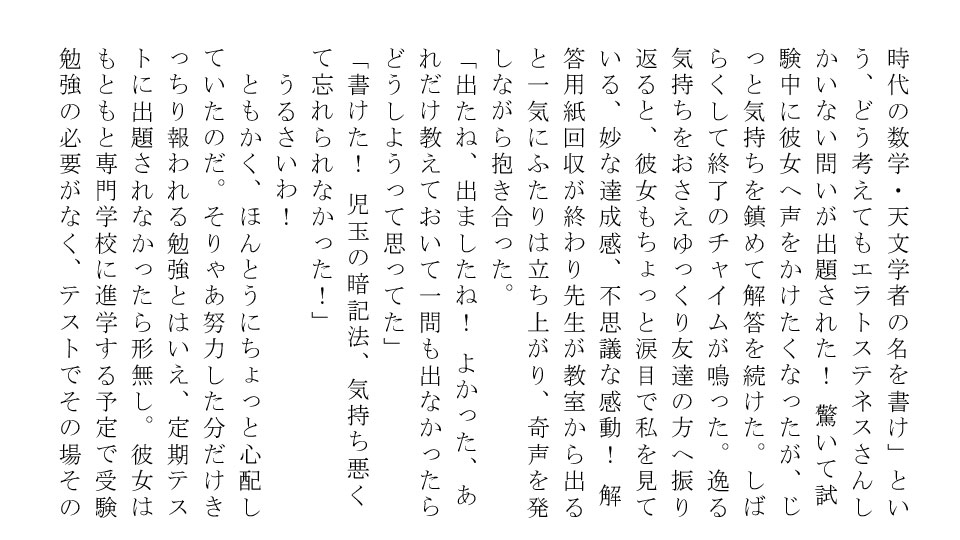 時代の数学・天文学者の名を書け」とい
う、どう考えてもエラトステネスさんし
かいない問いが出題された！　驚いて試
験中に彼女へ声をかけたくなったが、じ
っと気持ちを鎮めて解答を続けた。しば
らくして終了のチャイムが鳴った。逸る
気持ちをおさえゆっくり友達の方へ振り
返ると、彼女もちょっと涙目で私を見て
いる、妙な達成感、不思議な感動！　解
答用紙回収が終わり先生が教室から出る
と一気にふたりは立ち上がり、奇声を発
しながら抱き合った。
「出たね、出ましたね！　よかった、あ
れだけ教えておいて一問も出なかったら
どうしようって思ってた」
「書けた！　児玉の暗記法、気持ち悪く
て忘れられなかった！」
　うるさいわ！
　ともかく、ほんとうにちょっと心配し
ていたのだ。そりゃあ努力した分だけき
っちり報われる勉強とはいえ、定期テス
トに出題されなかったら形無し。彼女は
もともと専門学校に進学する予定で受験
勉強の必要がなく、テストでその場その